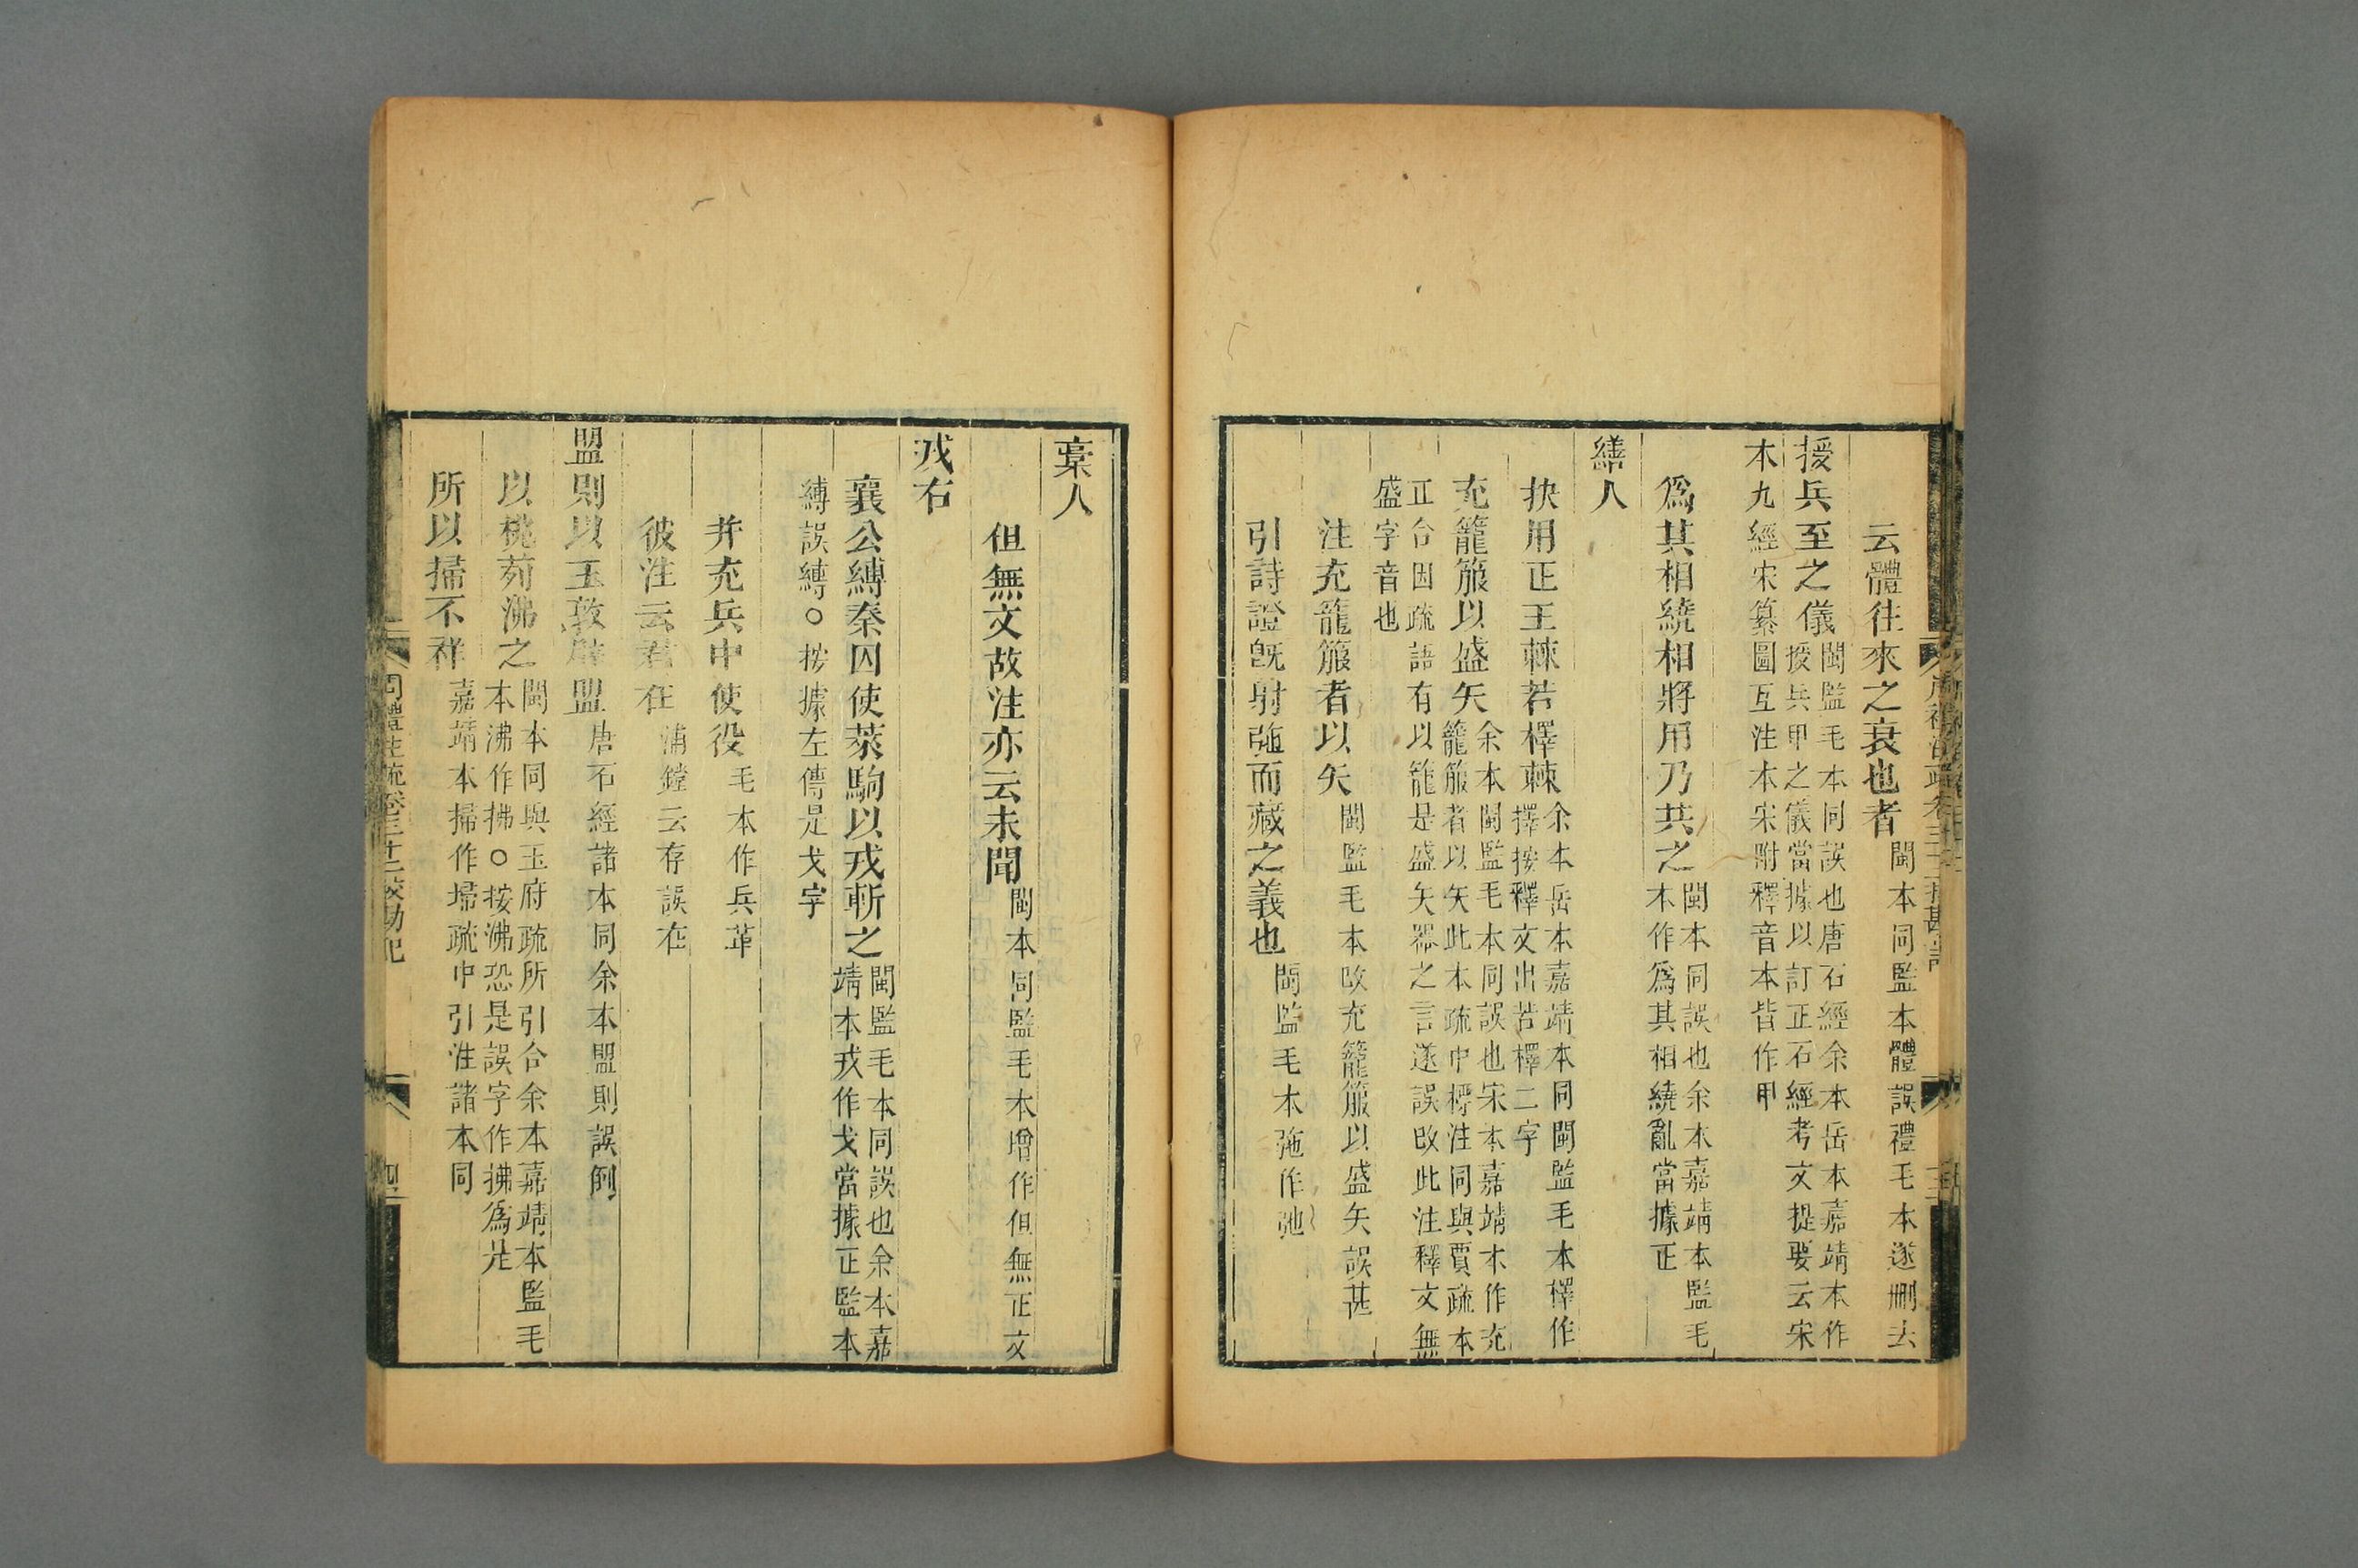 云體往來之衰也者閩本同監本體誤禮毛本遂刪去
授兵至之儀閩監毛本同誤也唐石經余本岳本嘉靖本作
授兵甲之儀當據以訂正石經考文提要云宋
本九經宋纂圖互注本宋附釋音本皆作甲
爲其相繞相將用乃共之閩本同誤也余本嘉靖本監毛
本作爲其相繞亂當據正
繕人
抉用正王棘若檡棘余本岳本嘉靖本同閩監毛本檡作
擇按釋文出若檡二字
充籠箙以盛矢余本閩監毛本同誤也宋本嘉靖本作充
籠箙者以矢此本疏中標注同與賈疏本
正合因疏語有以籠是盛矢器之言遂誤改此注釋文無
盛字音也
注充籠箙者以矢閩監毛本改充籠箙以盛矢誤甚
引詩證旣射弛而藏之義也閩監毛本弛作弛
周禮注疏卷三十二校勘記
三
槀人
但無文故注亦云未聞閩本同監毛本增作但無正文
戎右
襄公縛秦囚使萊駒以戎斬之閩監毛本同誤也余本嘉
靖本戎作戈當據正監本
縛誤縳○按據左傳是戈字
并充兵中使役毛本作兵革
彼注云君在浦鏜云存誤在
盟則以玉敦辟盟唐石經諸本同余本盟則誤倒
以桃茢沸之閩本同與玉府疏所引合余本嘉靖本監毛
本沸作拂○按沸恐是誤字作拂爲是
所以掃不祥嘉靖本掃作埽疏中引注諸本同
周禮注疏卷三十二校勘記
四